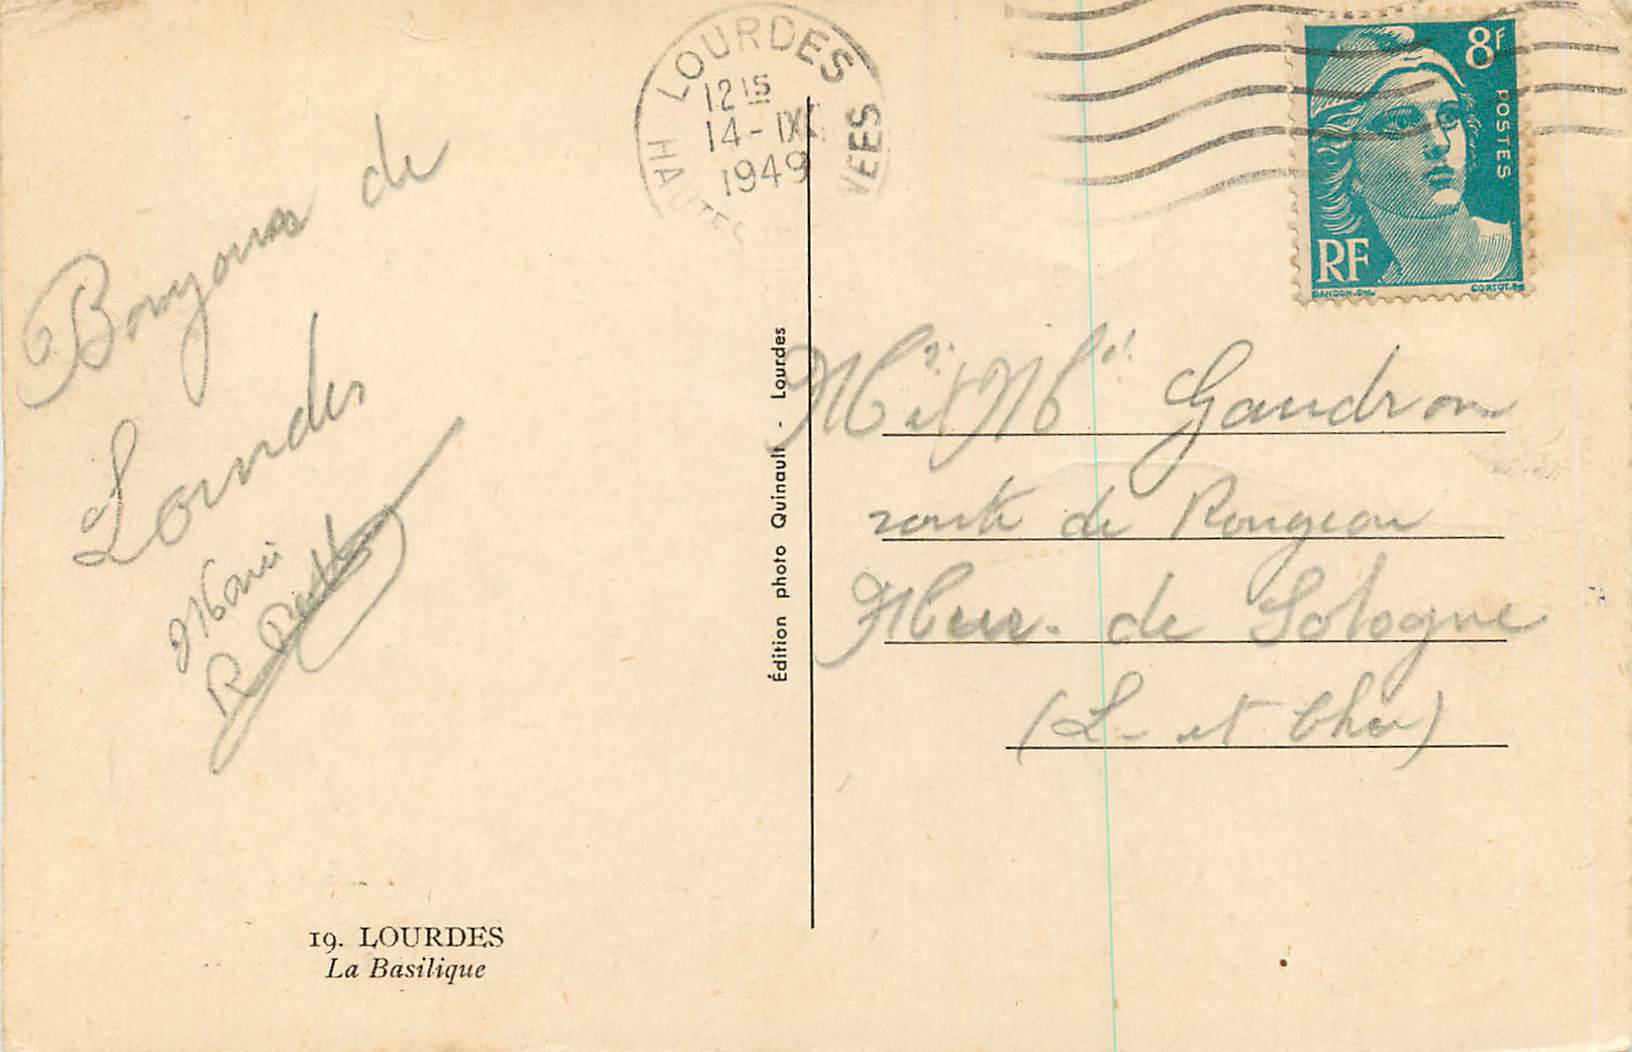 LOURDES
12 15
14-IX
1949
HAUTES
NEES
8F
POSTES
RF
GANDON.
CORTOT.
Bonjour de
Lourdes
Marie
R
Édition photo Quinault - Lourdes
Mr et Me Gaudron
route de Rougeou
Mur. de Sologne
(L- et Cher)
19. LOURDES
La Basilique